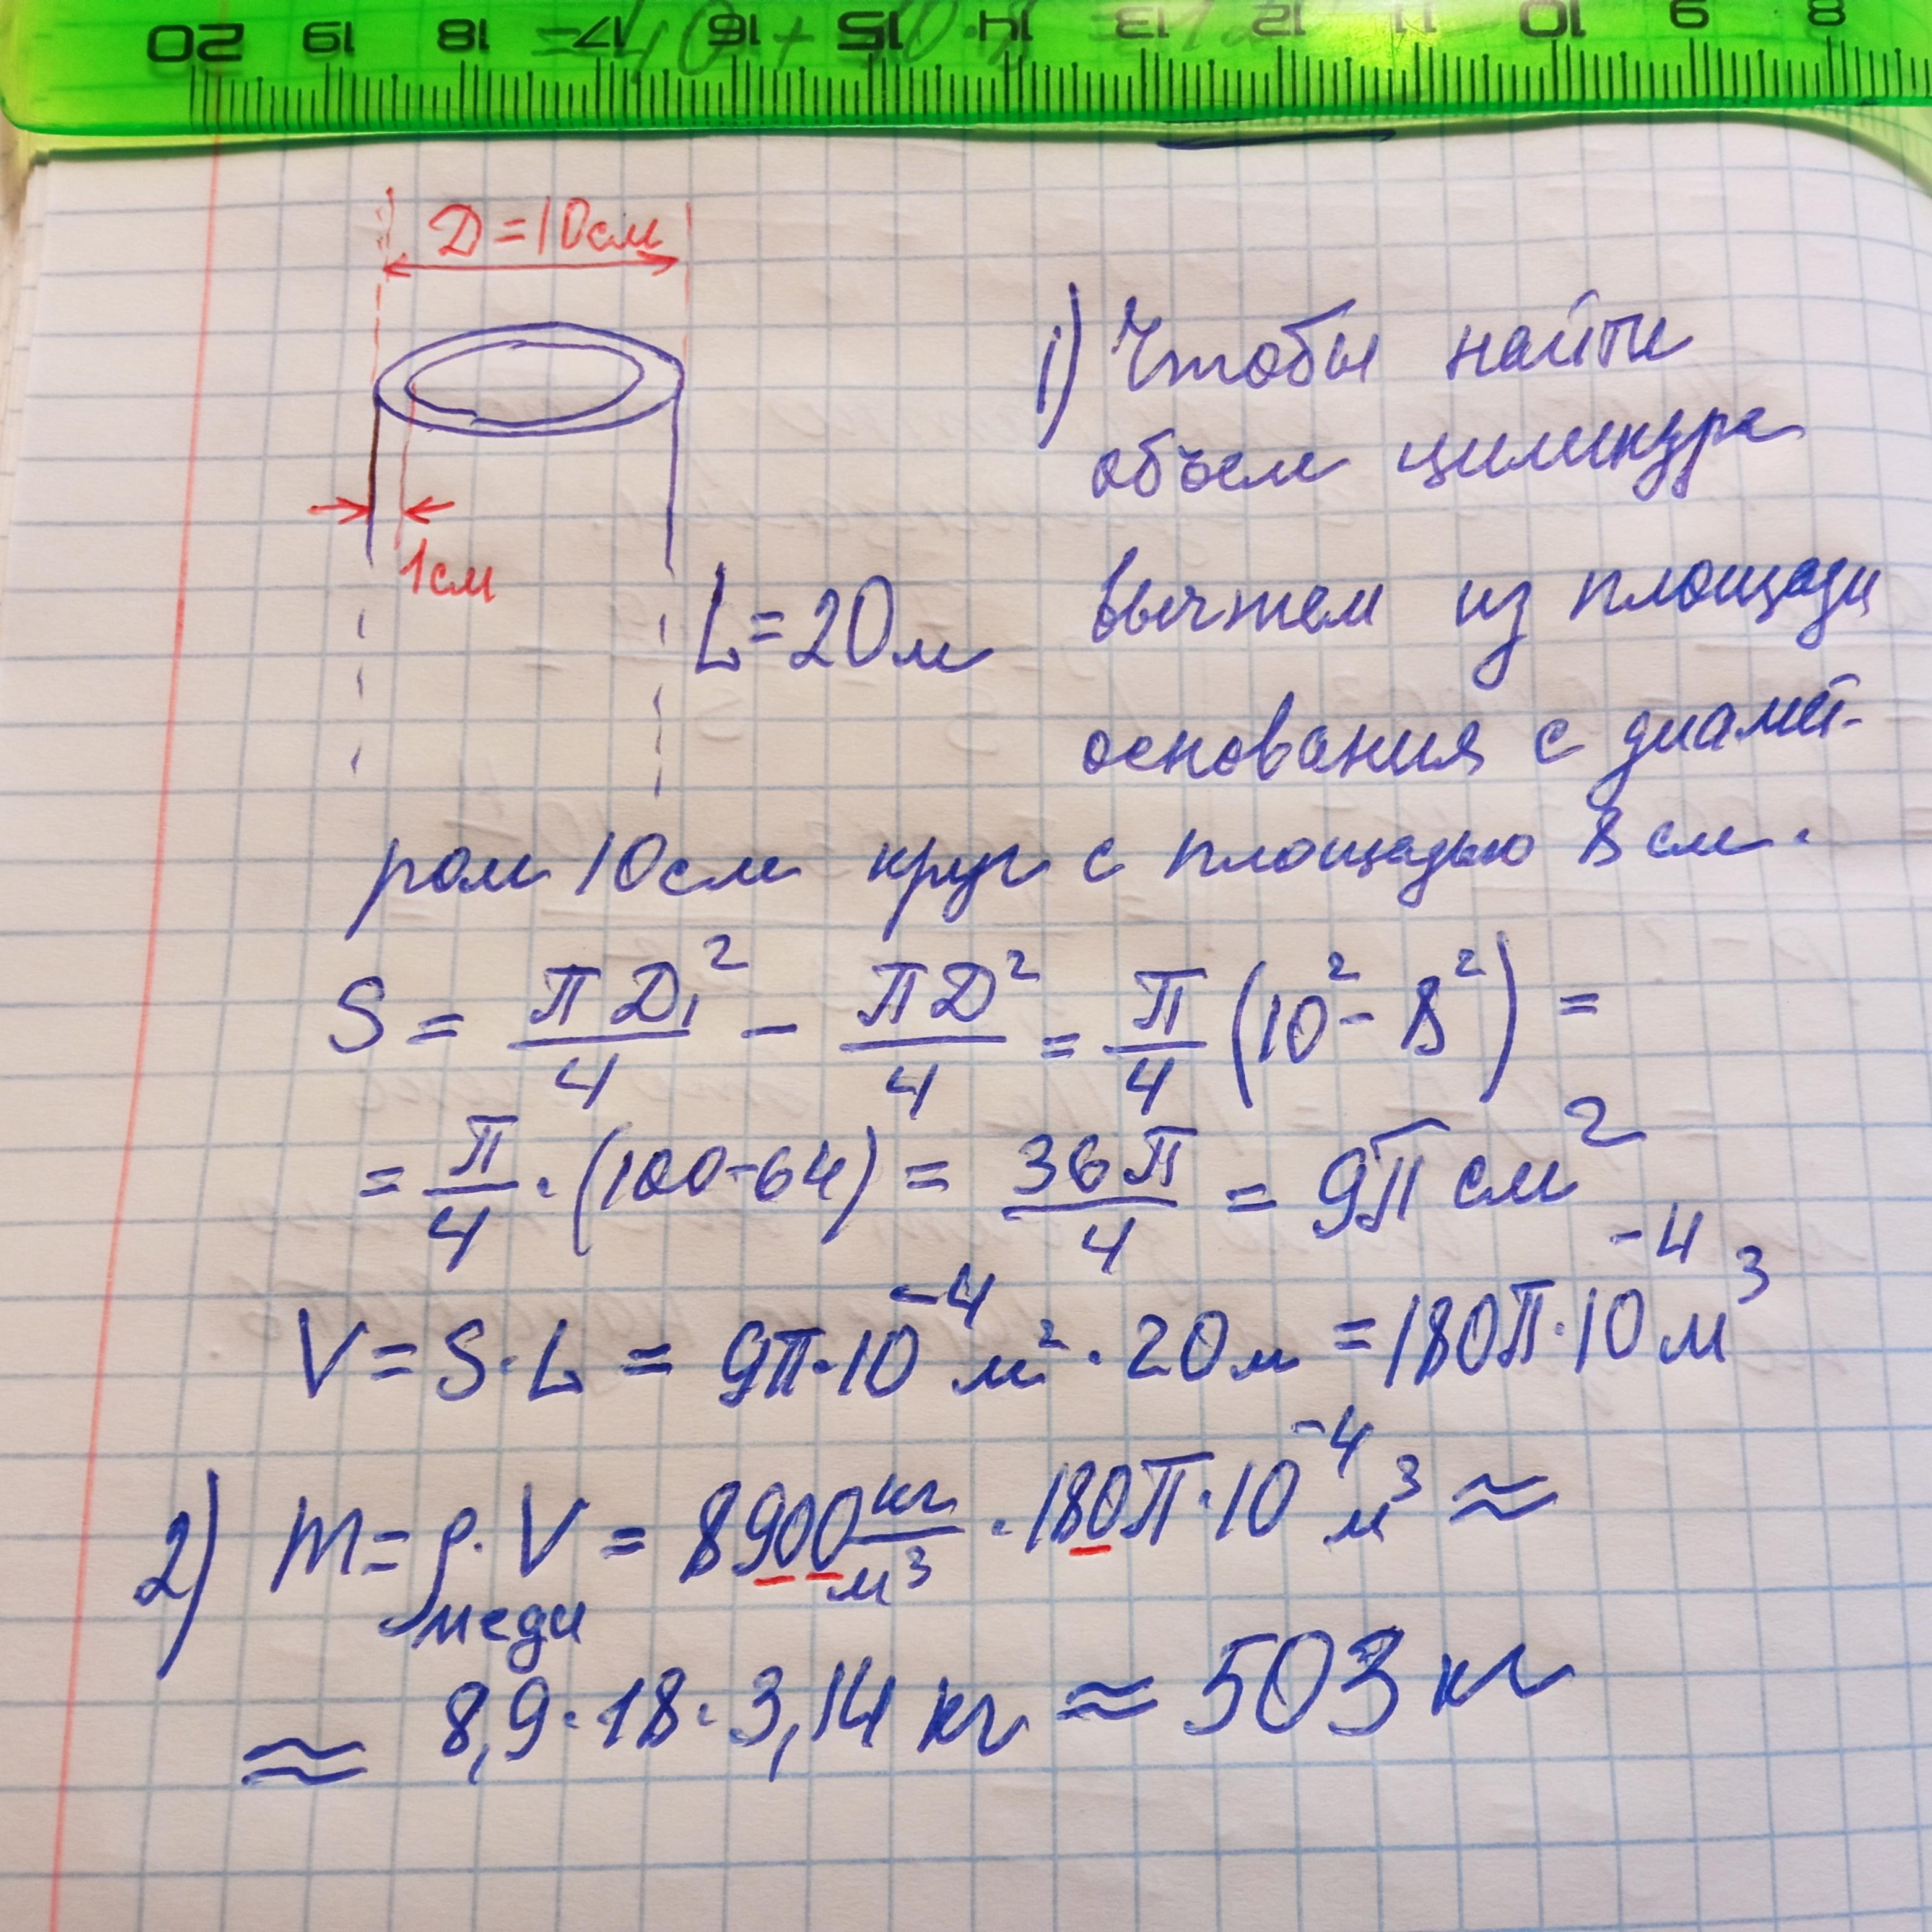 20 19 18 17 16 15 14 13 12 11 10 9 8
Д=10см
1см
L=20м
1) Чтобы найти
объем цилиндра
вычтем из площади
основания с диамет-
ром 10см круг с площадью 8 см.
S = πД₁²/4 - πД²/4 = π/4 (10² - 8²) =
= π/4 · (100-64) = 36π/4 = 9π см²
V = S · L = 9π·10⁻⁴ м² · 20м = 180π·10⁻⁴ м³
2) m = ρ меди · V = 8900 кг/м³ · 180π·10⁻⁴ м³ ≈
≈ 8,9·18·3,14 кг ≈ 503 кг